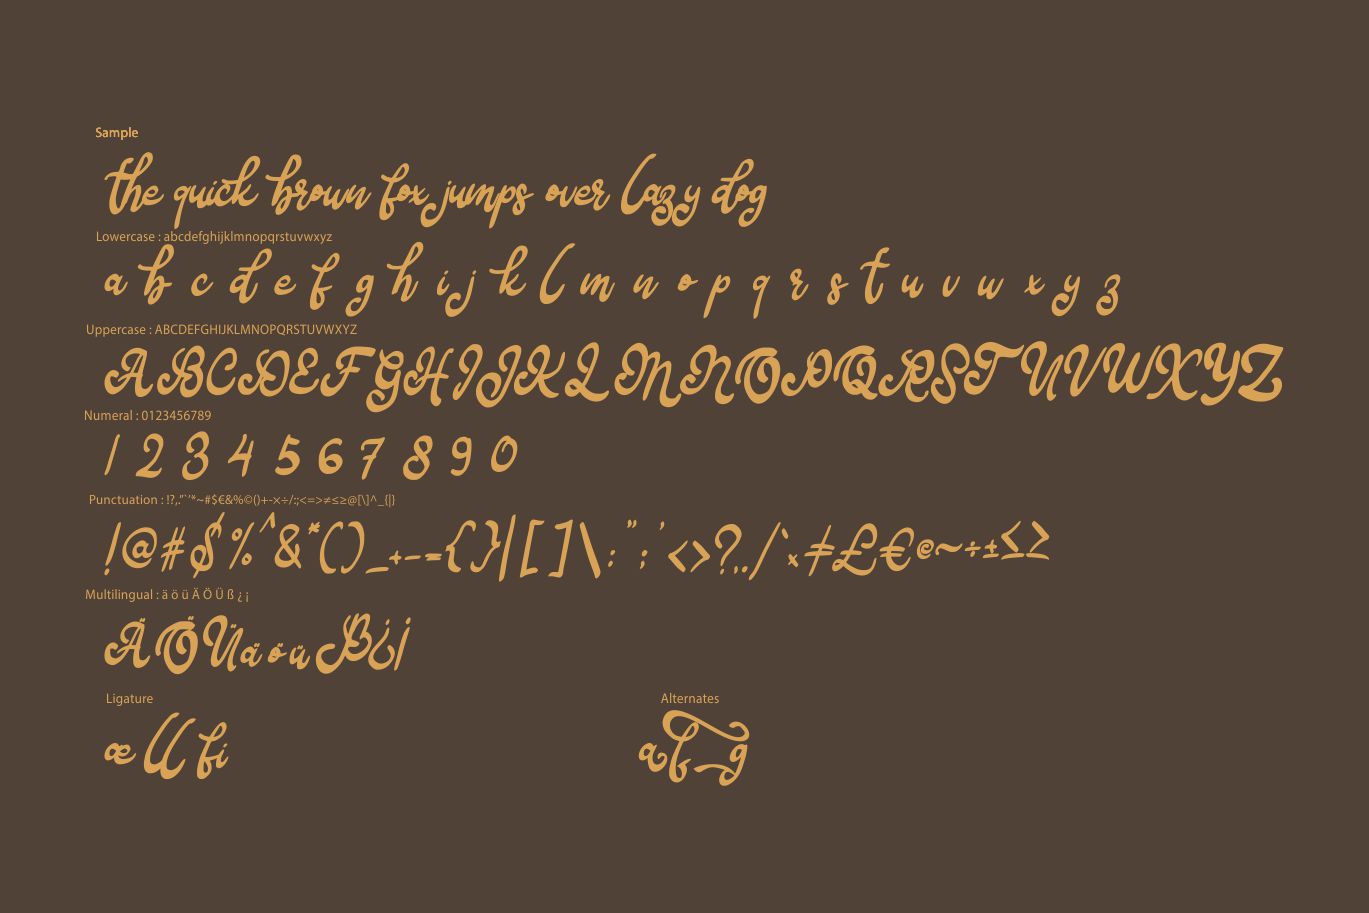 Sample
the quick brown fox jumps over lazy dog
Lowercase : abcdefghijklmnopqrstuvwxyz
a b c d e f g h i j k l m n o p q r s t u v w x y z
Uppercase : ABCDEFGHIJKLMNOPQRSTUVWXYZ
ABCDEFGHIJKLMNOPQRSTUVWXYZ
Numeral : 0123456789
1 2 3 4 5 6 7 8 9 0
Punctuation : !?,."`'*~#$€&%©()+-×÷/:;<=>≠≤≥@[\]^_{|}
!@#$%^&*()_+-={}|[]\:";'<>?,./`×≠£€©~÷±≤≥
Multilingual : ä ö ü Ä Ö Ü ß ¿ ¡
ÄÖÜäöüß¿¡
Ligature Alternates
æ ll fi a f g